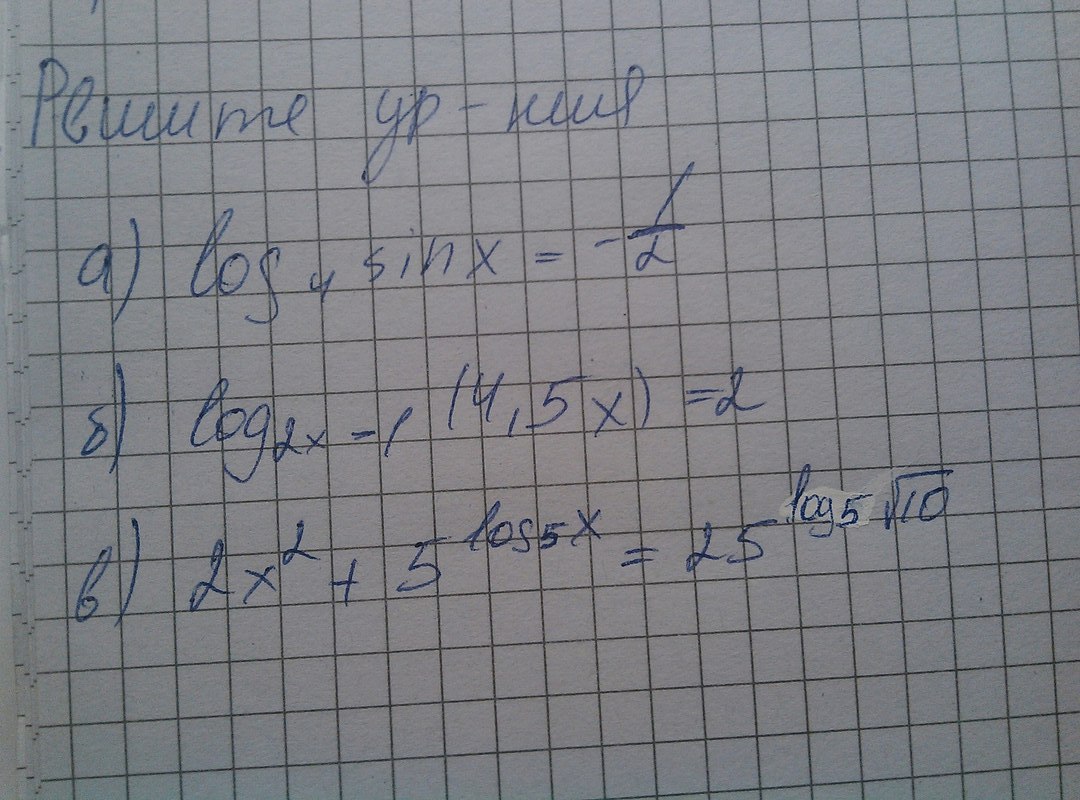 Решите ур-ния
а) log₄ sin x = -1/2
б) log₂ₓ₋₁ (4,5x) = 2
в) 2x² + 5^(log₅x) = 25^(log₅√10)